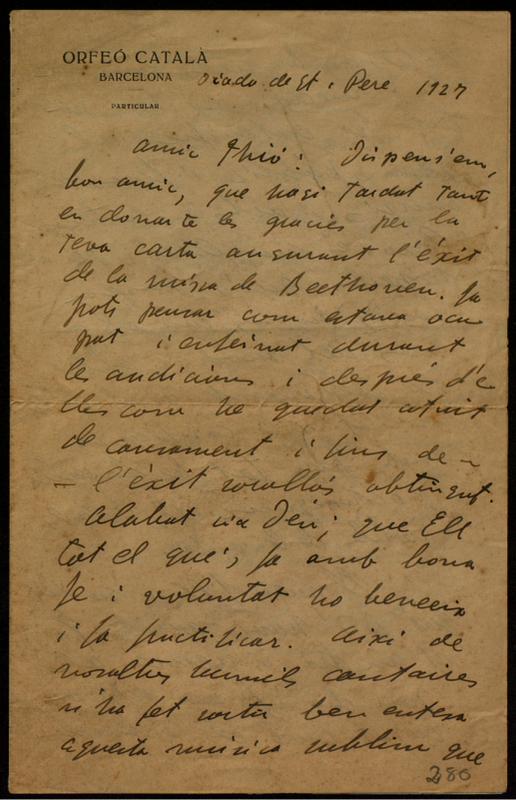 ORFEÓ CATALÀ
BARCELONA
PARTICULAR
Diada de St. Pere 1927
Amic Thió: Dispensi'm,
bon amic, que hagi tardat tant
en donar-te les gracies per la
teva carta augurant l'éxit
de la missa de Beethoven. Ja
pots pensar com estava ocu
pat i enfeinat durant
les audicions i després d'e
lles com he quedat
de cansament i fins de
l'èxit obtingut.
Alabat sia Déu; que Ell
tot el que's fa amb bona
fe i voluntat ho beneeix
i fa fructificar. Aixi de
nosaltres humils cantaires
n'ha fet sortir ben entesa
aquesta música sublim que
280